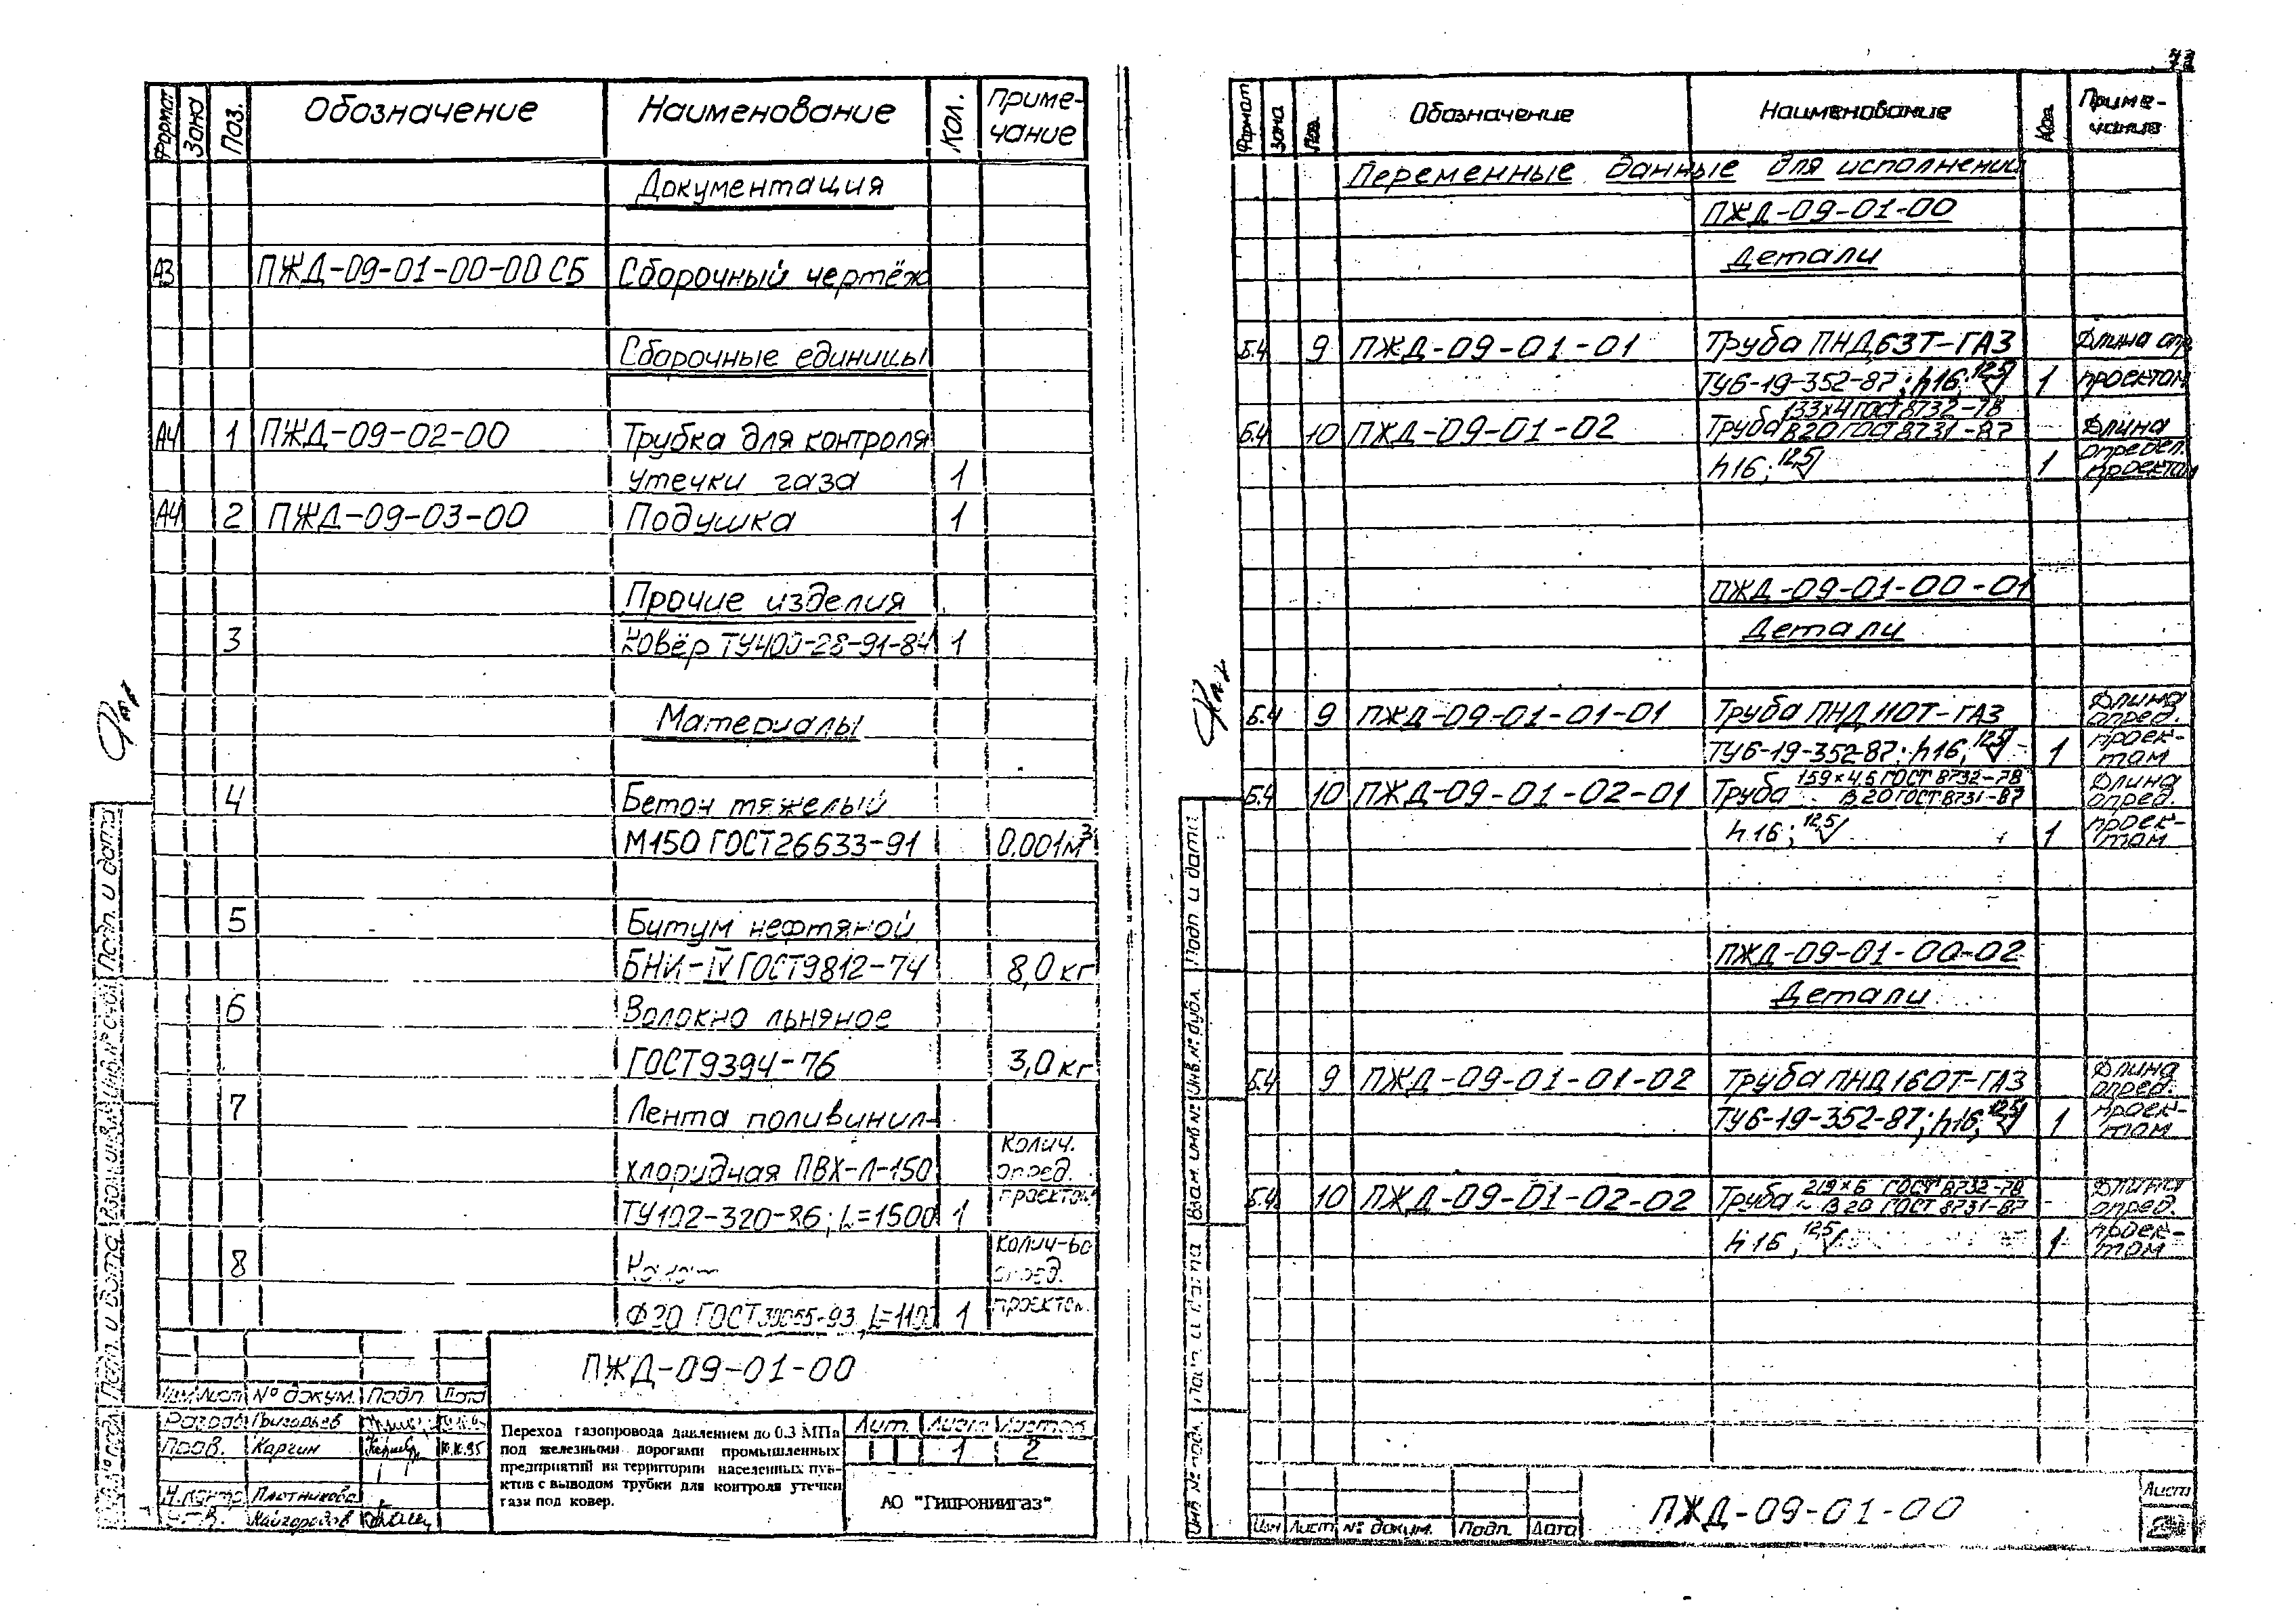 Формат Зона Поз. Обозначение Наименование Кол. Приме-
чание
Документация
А3 ПЖД-09-01-00-00 СБ Сборочный чертёж
Сборочные единицы
А4 1 ПЖД-09-02-00 Трубка для контроля
утечки газа 1
А4 2 ПЖД-09-03-00 Подушка 1
Прочие изделия
3 Ковёр ТУ400-28-91-84 1
Материалы
4 Бетон тяжелый
М150 ГОСТ26633-91 0.001м³
5 Битум нефтяной
БНИ-IV ГОСТ9812-74 8,0 кг
6 Волокно льняное
ГОСТ9394-76 3,0 кг
7 Лента поливинил-
хлоридная ПВХ-Л-150 Колич. опред.
ТУ102-320-86; L=1500 1 проектом
8 Колич-во опред.
ГОСТ L=1100 1 проектом
ПЖД-09-01-00
Изм Лист № докум. Подп Дата
Разраб Григорьев
Пров. Каргин
Н.контр Плотникова
Утв. Майгородов
Переход газопровода давлением до 0.3 МПа
под железными дорогами промышленных
предприятий на территории населенных пун-
ктов с выводом трубки для контроля утечки
газа под ковер.
Лит. Лист Листов
1 2
АО "Гипрониигаз"
Подп. и дата
Подп. и дата
Формат Зона Поз. Обозначение Наименование Кол. Приме-
чание
Переменные данные для исполнений
ПЖД-09-01-00
Детали
Б.4 9 ПЖД-09-01-01 Труба ПНД63Т-ГАЗ Длина опр.
ТУ6-19-352-87; h16; 12,5 1 проектом
133×4 ГОСТ 8732-78
Б.4 10 ПЖД-09-01-02 Труба В20 ГОСТ 8731-87 Длина
h16; 12,5 1 определ. проектом
ПЖД-09-01-00-01
Детали
Б.4 9 ПЖД-09-01-01-01 Труба ПНД110Т-ГАЗ Длина опред.
ТУ6-19-352-87; h16; 12,5 1 проек-
том
159×4.5 ГОСТ 8732-78
Б.4 10 ПЖД-09-01-02-01 Труба В20 ГОСТ 8731-87 Длина опред.
h16; 12,5 1 проек-
том
ПЖД-09-01-00-02
Детали
Б.4 9 ПЖД-09-01-01-02 Труба ПНД160Т-ГАЗ Длина опред.
ТУ6-19-352-87; h16; 12,5 1 проек-
том
219×6 ГОСТ 8732-78
Б.4 10 ПЖД-09-01-02-02 Труба В20 ГОСТ 8731-87 Длина опред.
h16; 12,5 1 проек-
том
Подп и дата
Инв.№ дубл.
Взам. инв №
Подп. и дата
Инв № подл.
Изм Лист № докум. Подп. Дата
ПЖД-09-01-00
Лист
2